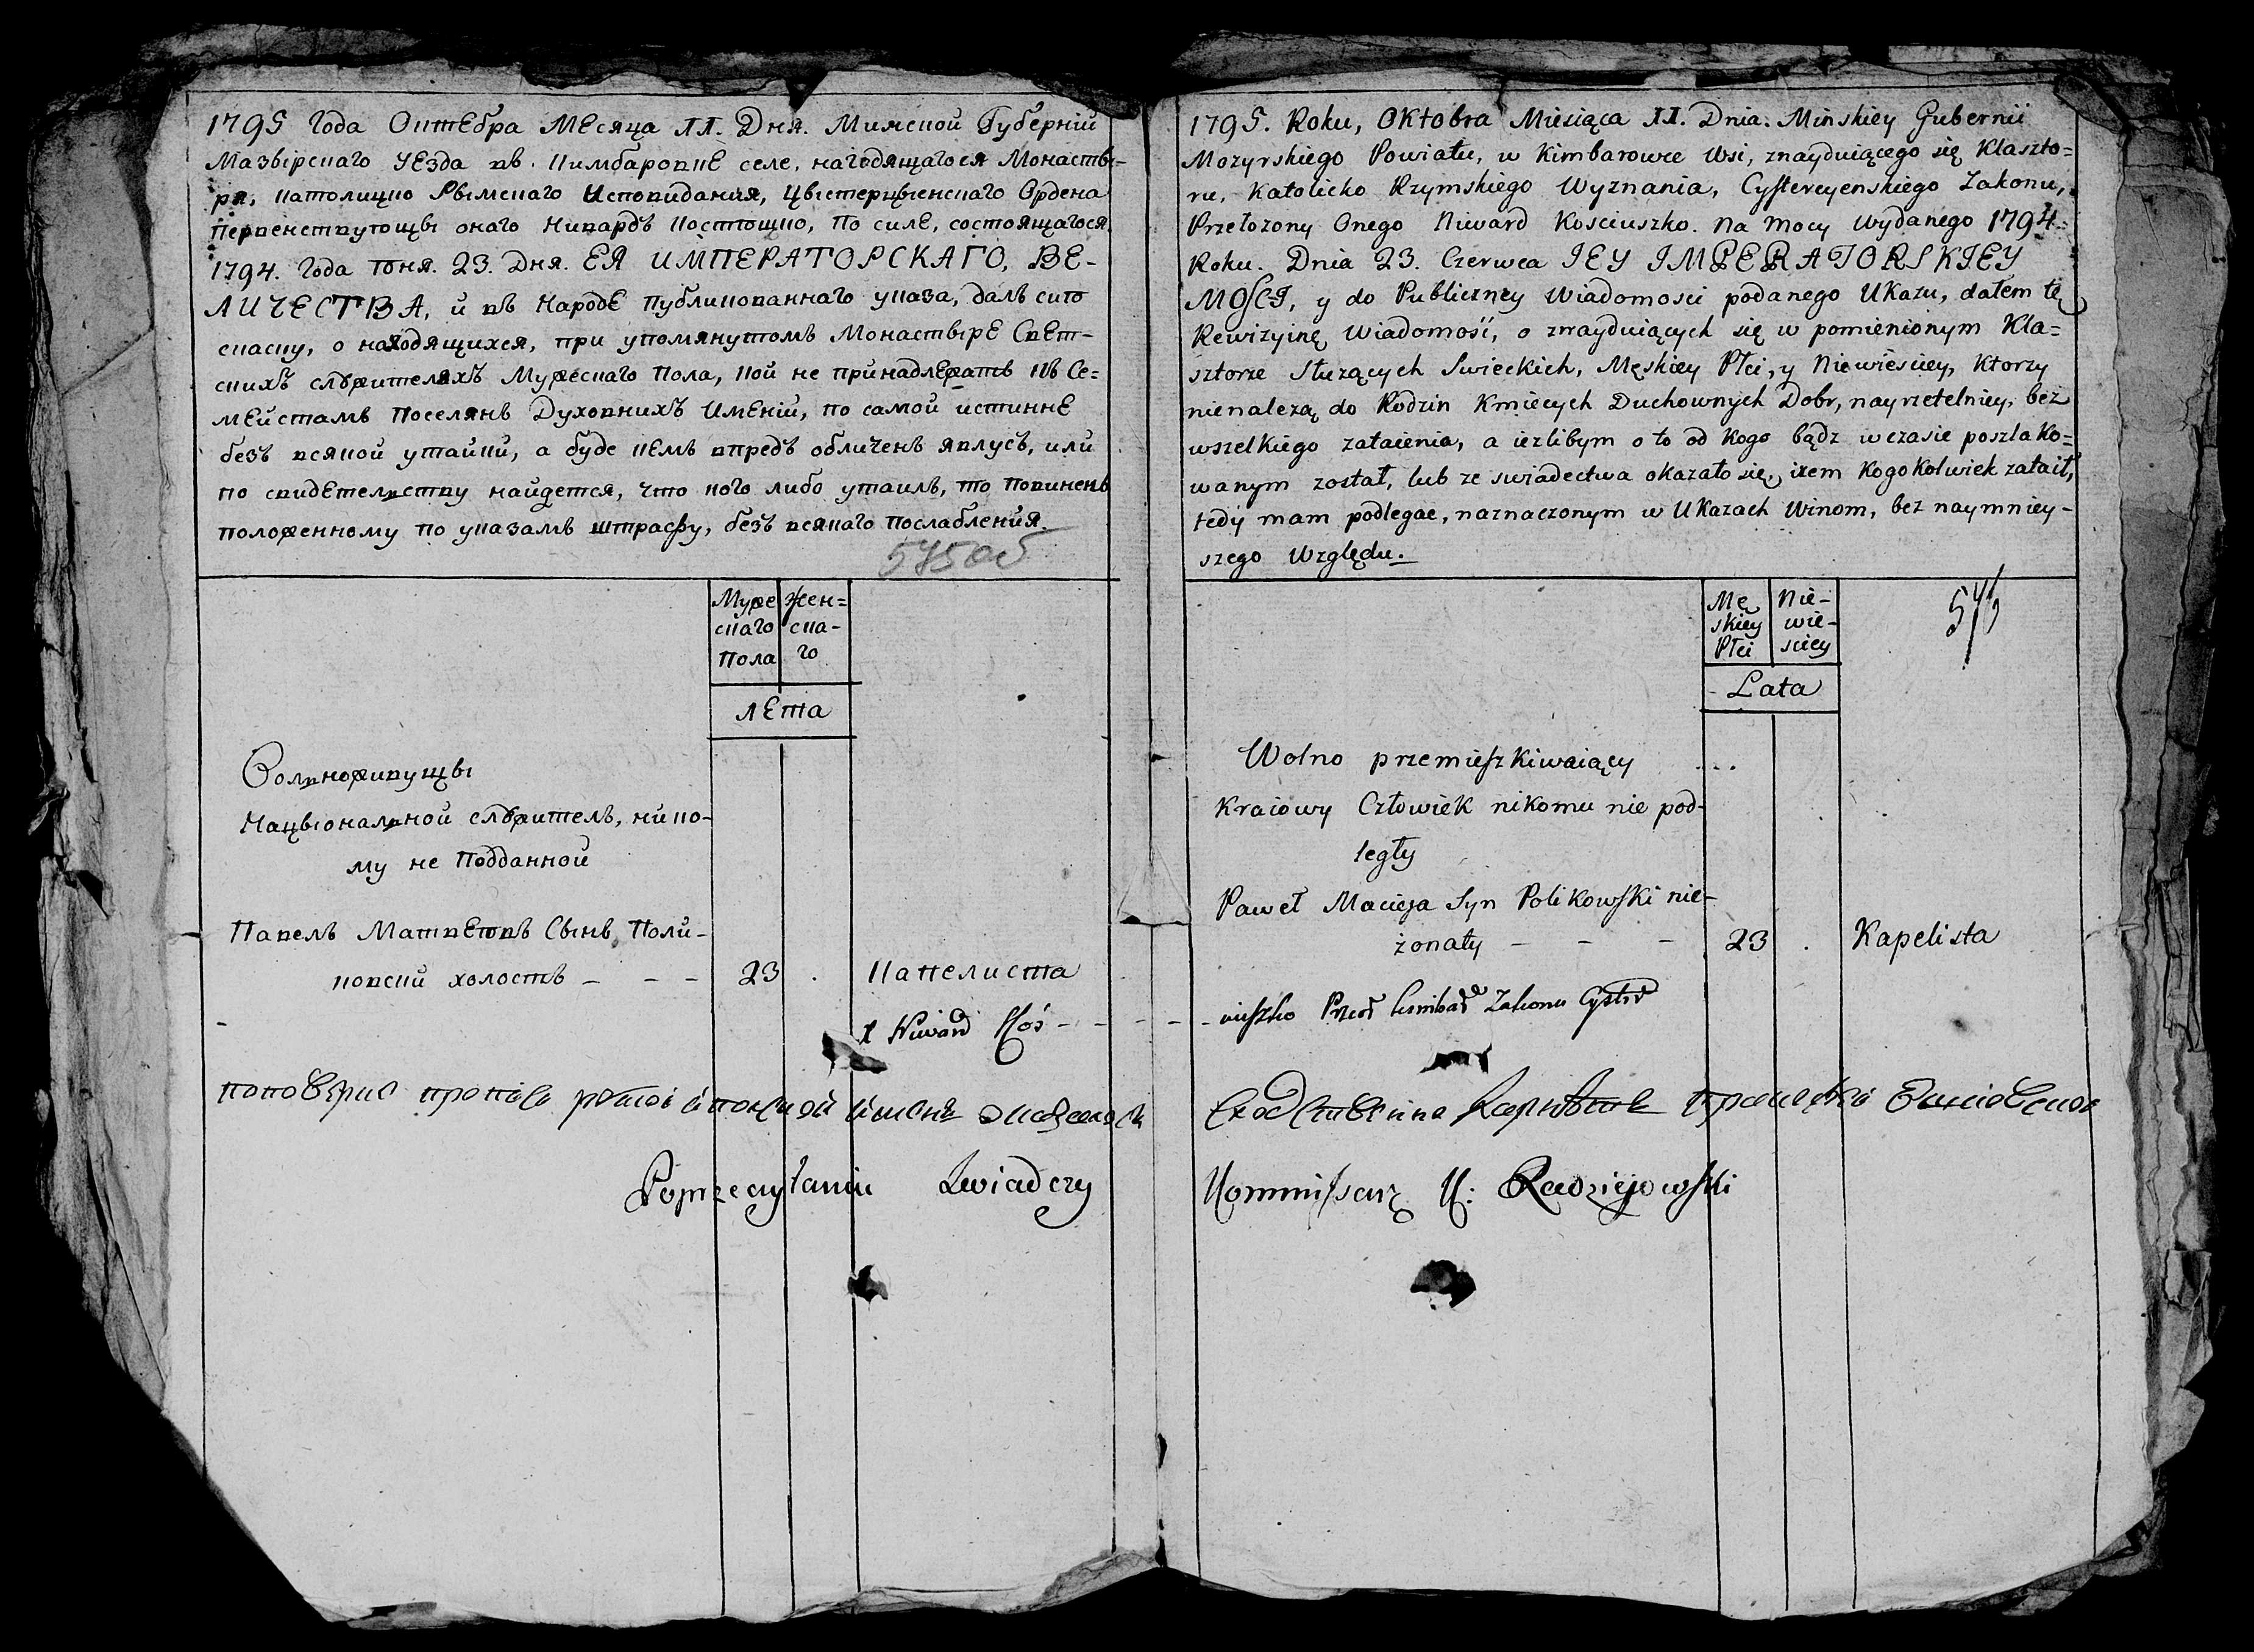 1795 года Октебра Месяца 11. Дня. Минской Губернїи
Мазырскаго Уезда въ. Кимбаровке селе, находящагося Монасты-
ря, католицко Рымскаго Исповидания, Цыстерцыенскаго Ордена
Первенствующы онаго Нивардъ Костюшко, по силе, состоящагося
1794. года Юня. 23. Дня. ЕЯ ИМПЕРАТОРСКАГО, ВЕ-
ЛИЧЕСТВА, и въ Народе Публикованнаго указа, далъ сию
скаску, о находящихся, при упомянутомъ Монастыре Свет-
скихъ служителяхъ Мужескаго пола, кои не принадлежатъ къ Се=
мействамъ Поселянъ Духовнихъ Именїй, по самой истинне
безъ всякой утайки, а буде кемъ впредъ обличенъ явлусь, или
по свидетельству найдется, что кого либо утаилъ, то повиненъ
положенному по указамъ штрафу, безъ всякаго послабления.
545об
Муже
скаго
Пола
жен=
ска-
го
лета
Вольноживущы
Нацыональной служитель, нико-
му не Подданной
Павелъ Матвеювъ Сынъ Поли-
ковски холостъ – – – 23 . Капелиста
X Niward Koś - - -
Poprzeczytaniu Swiadczy
1795. Roku, Oktobra Miesiąca 11. Dnia. Minskiey Gubernii
Mozyrskiego Powiatu, w Kimbarowce Wsi, znayduiącego się Klaszto=
ru, Katolicko Rzymskiego Wyznania, Cystercyenskiego Zakonu,
Przełozony Onego Niward Kosciuszko. Na mocy Wydanego 1794.
Roku. Dnia 23. Czerwca IEY IMPERATORSKIEY
MOSCI, y do Publiczney Wiadomosci podanego Ukazu, dałem tę
Rewizyinę Wiadomość, o znayduiących się w pomienionym Kla=
sztorze Słuzących Swieckich, Męskiey Płci, y Niewiesciey, Ktorzy
nienalezą do Rodzin Kmiecych Duchownych Dobr, nayrzetelniey, bez
wszelkiego zataienia, a iezlibym o to od Kogo bądz wczasie poszlako=
wanym został, lub ze swiadectwa okazało się, izem Kogokolwiek zataił,
tedy mam podlegac, naznaczonym w Ukazach Winom, bez naymniey-
szego Względu.
Mę
skiey
Płci
Nie-
wie-
sciey
546
Lata
Wolno przemieszkiwaiący ....
Kraiowy Człowiek nikomu nie pod-
legły
Paweł Macieja Syn Polikowski nie-
żonaty – – – 23 . Kapelista
- - ciuszko Przeoř Kimbař Zakonu Cystř
Kommissarz K: Radziejowski